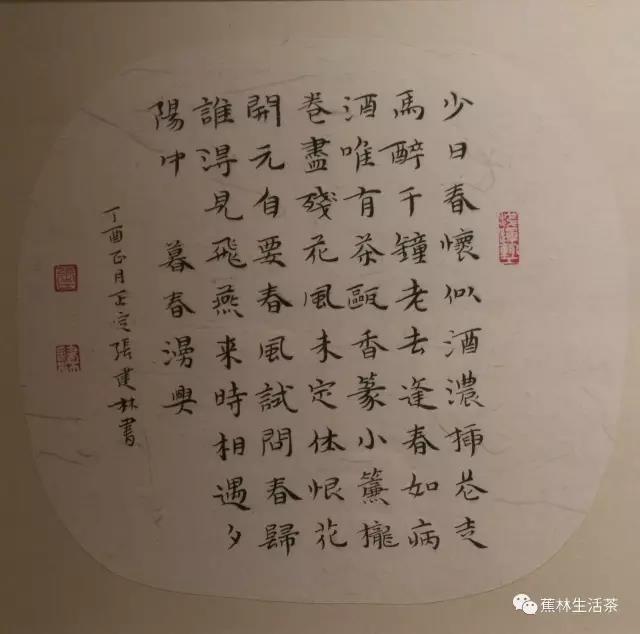 少日春懷似酒濃插花走
馬醉千鐘老去逢春如病
酒唯有茶甌香篆小簾櫳
卷盡殘花風未定休恨花
開元自要春風試問春歸
誰得見飛燕來時相遇夕
陽中 暮春漫興
丁酉正月正定張建林書
蕉林生活茶